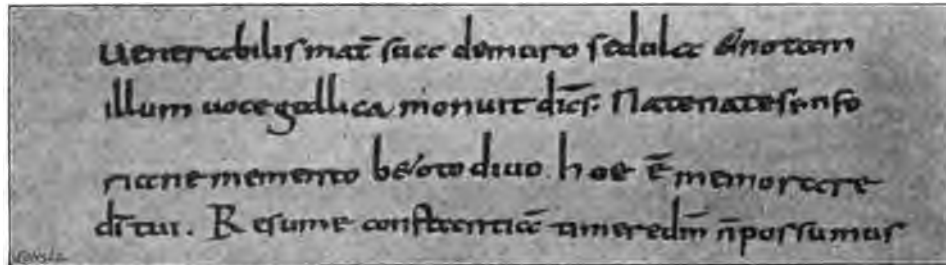 uenerabilis mat̄ sua demuro sedula &notam
illum uocegallica monuit dic̄s. Natenatesinfo
riane memento be&oto diuo. hoc ē memorare
dī tui. Resume constantiā timeredm̄ n̄possumus